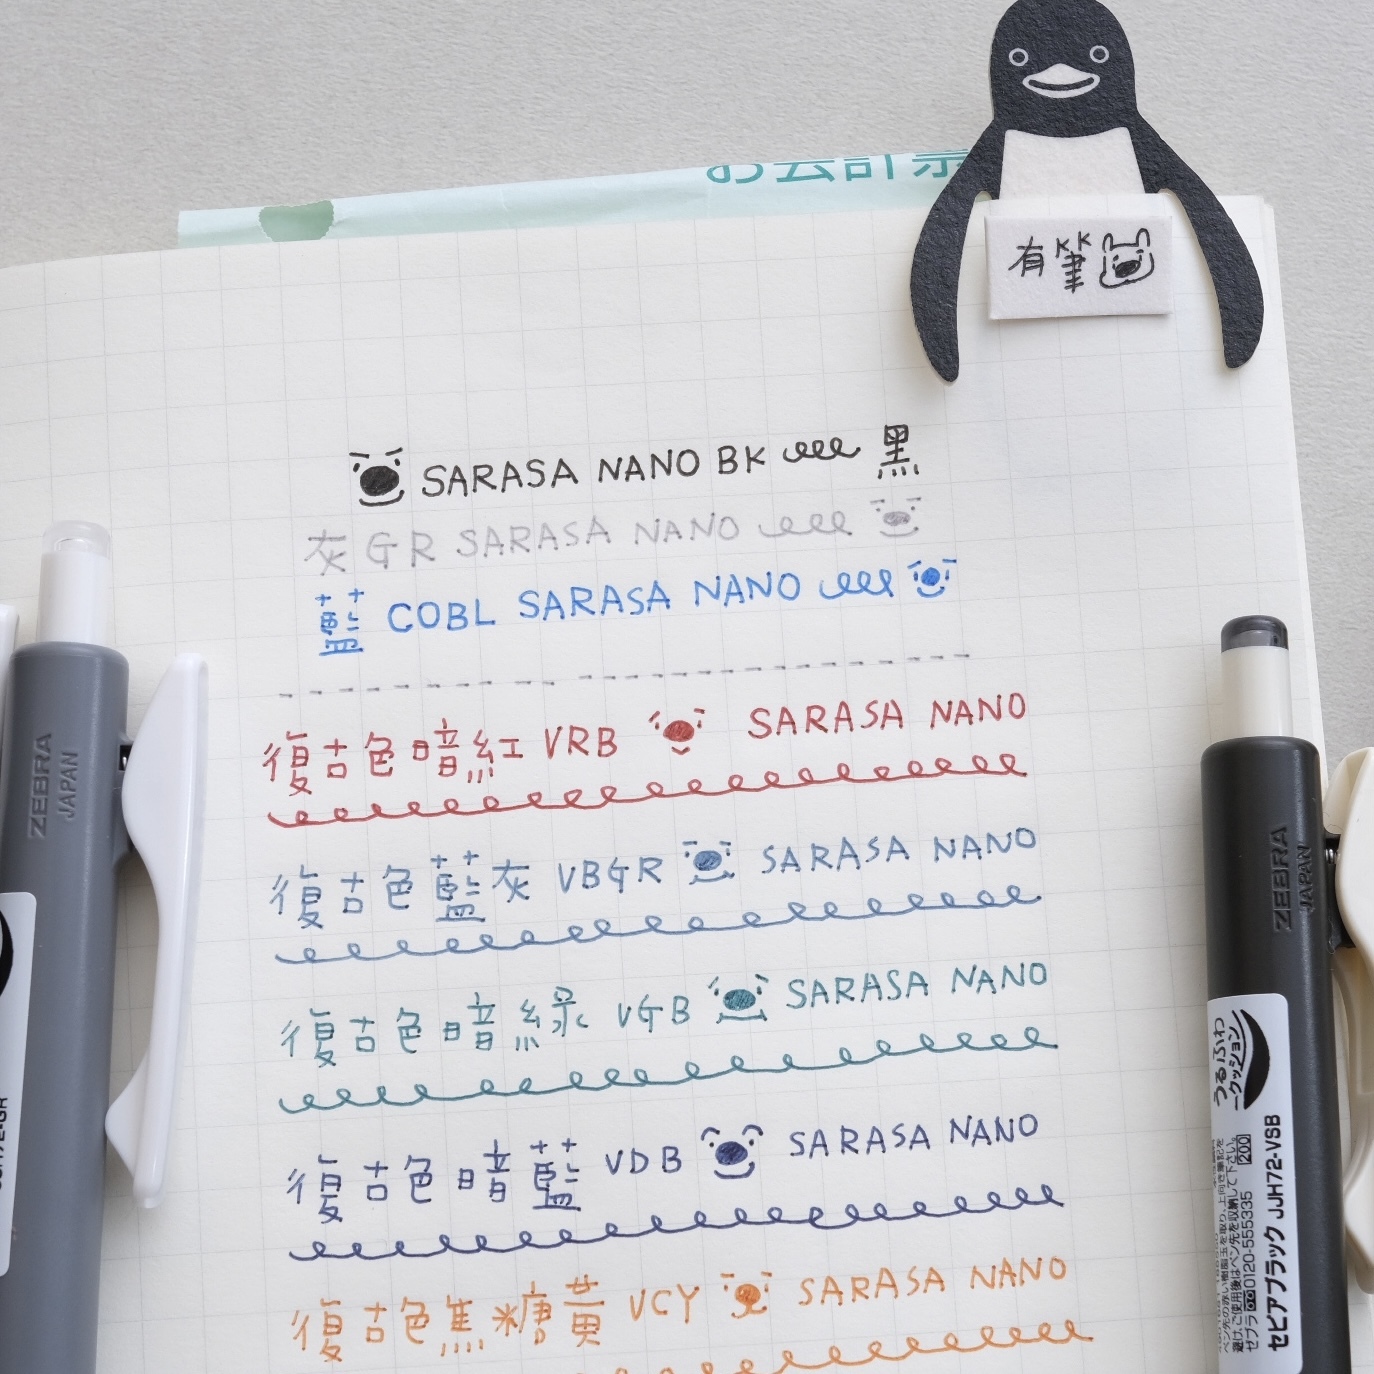 お会計票
有筆
SARASA NANO BK 黑
灰 GR SARASA NANO
藍 COBL SARASA NANO
復古色暗紅 VRB SARASA NANO
復古色藍灰 VBGR SARASA NANO
復古色暗綠 VGB SARASA NANO
復古色暗藍 VDB SARASA NANO
復古色焦糖黃 VCY SARASA NANO
ZEBRA
JAPAN
ZEBRA
JAPAN
うるふわ
クッション
200
ゼブラ 0120-555335
セピアブラック JJH72-VSB